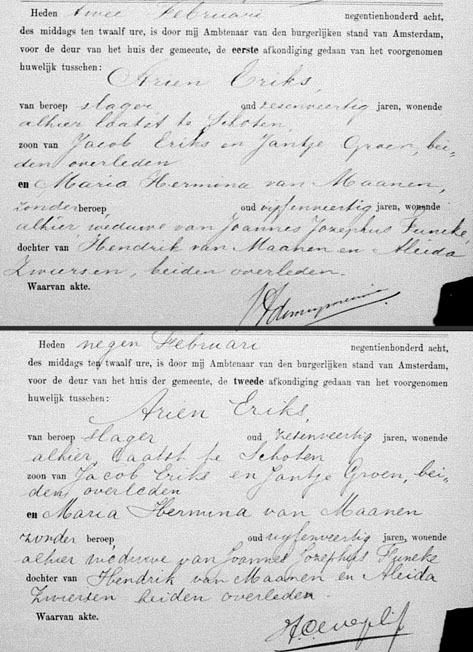 Heden twee Februari negentienhonderd acht,
des middags ten twaalf ure, is door mij Ambtenaar van den burgerlijken stand van Amsterdam,
voor de deur van het huis der gemeente, de eerste afkondiging gedaan van het voorgenomen
huwelijk tusschen:
Arien Eriks,
van beroep slager oud zesenveertig jaren, wonende
alhier laatst te Schoten,
zoon van Jacob Eriks en Jantje Groen, bei-
den overleden
en Maria Hermina van Maanen,
zonder beroep oud vyfenveertig jaren, wonende
alhier weduwe van Joannes Jozephus Funeke
dochter van Hendrik van Maanen en Aleida
Zwiersen, beiden overleden.
Waarvan akte.
Heden negen Februari negentienhonderd acht,
des middags ten twaalf ure, is door mij Ambtenaar van den burgerlijken stand van Amsterdam,
voor de deur van het huis der gemeente, de tweede afkondiging gedaan van het voorgenomen
huwelijk tusschen:
Arien Eriks,
van beroep slager oud zesenveertig jaren, wonende
alhier, laatst te Schoten
zoon van Jacob Eriks en Jantje Groen, bei-
den overleden
en Maria Hermina van Maanen
zonder beroep oud vyfenveertig jaren, wonende
alhier weduwe van Joannes Jozephus Funeke
dochter van Hendrik van Maanen en Aleida
Zwiersen beiden overleden.
Waarvan akte.